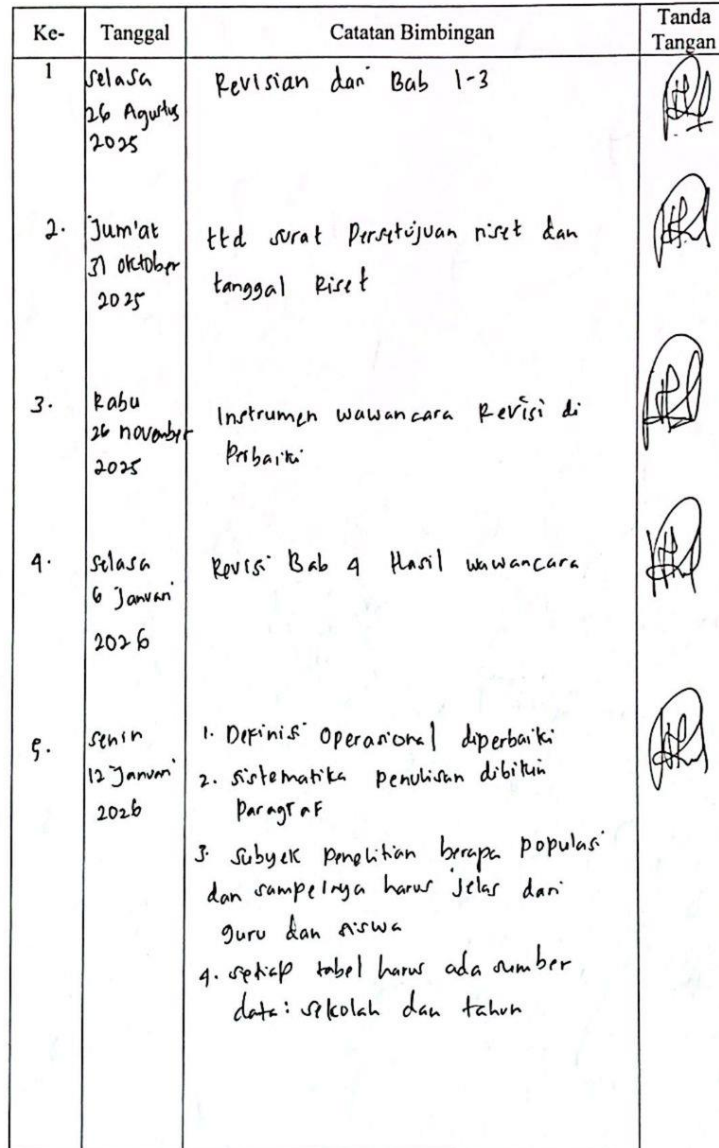 Ke- Tanggal Catatan Bimbingan Tanda Tangan
1 Selasa 26 Agustus 2025 Revisian dari Bab 1-3
2. Jum'at 31 oktober 2025 ttd surat Persetujuan riset dan
tanggal Riset
3. Rabu 26 november 2025 Instrumen wawancara Revisi di
Perbaiki
4. Selasa 6 Januari 2026 Revisi Bab 4 Hasil wawancara
5. Senin 12 Januari 2026 1. Definisi Operasional diperbaiki
2. Sistematika penulisan dibikin
Paragraf
3. Subyek penelitian berapa populasi
dan sampelnya harus jelas dari
guru dan siswa
4. setiap tabel harus ada sumber
data: sekolah dan tahun